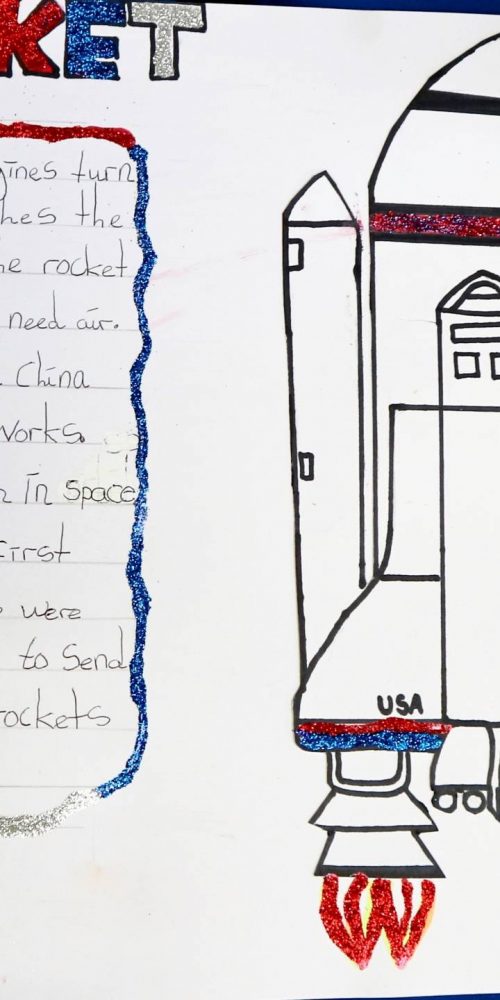 KET
gines turn
hes the
he rocket
need air.
China
Works.
n In space
First
were
to Send
rockets
USA